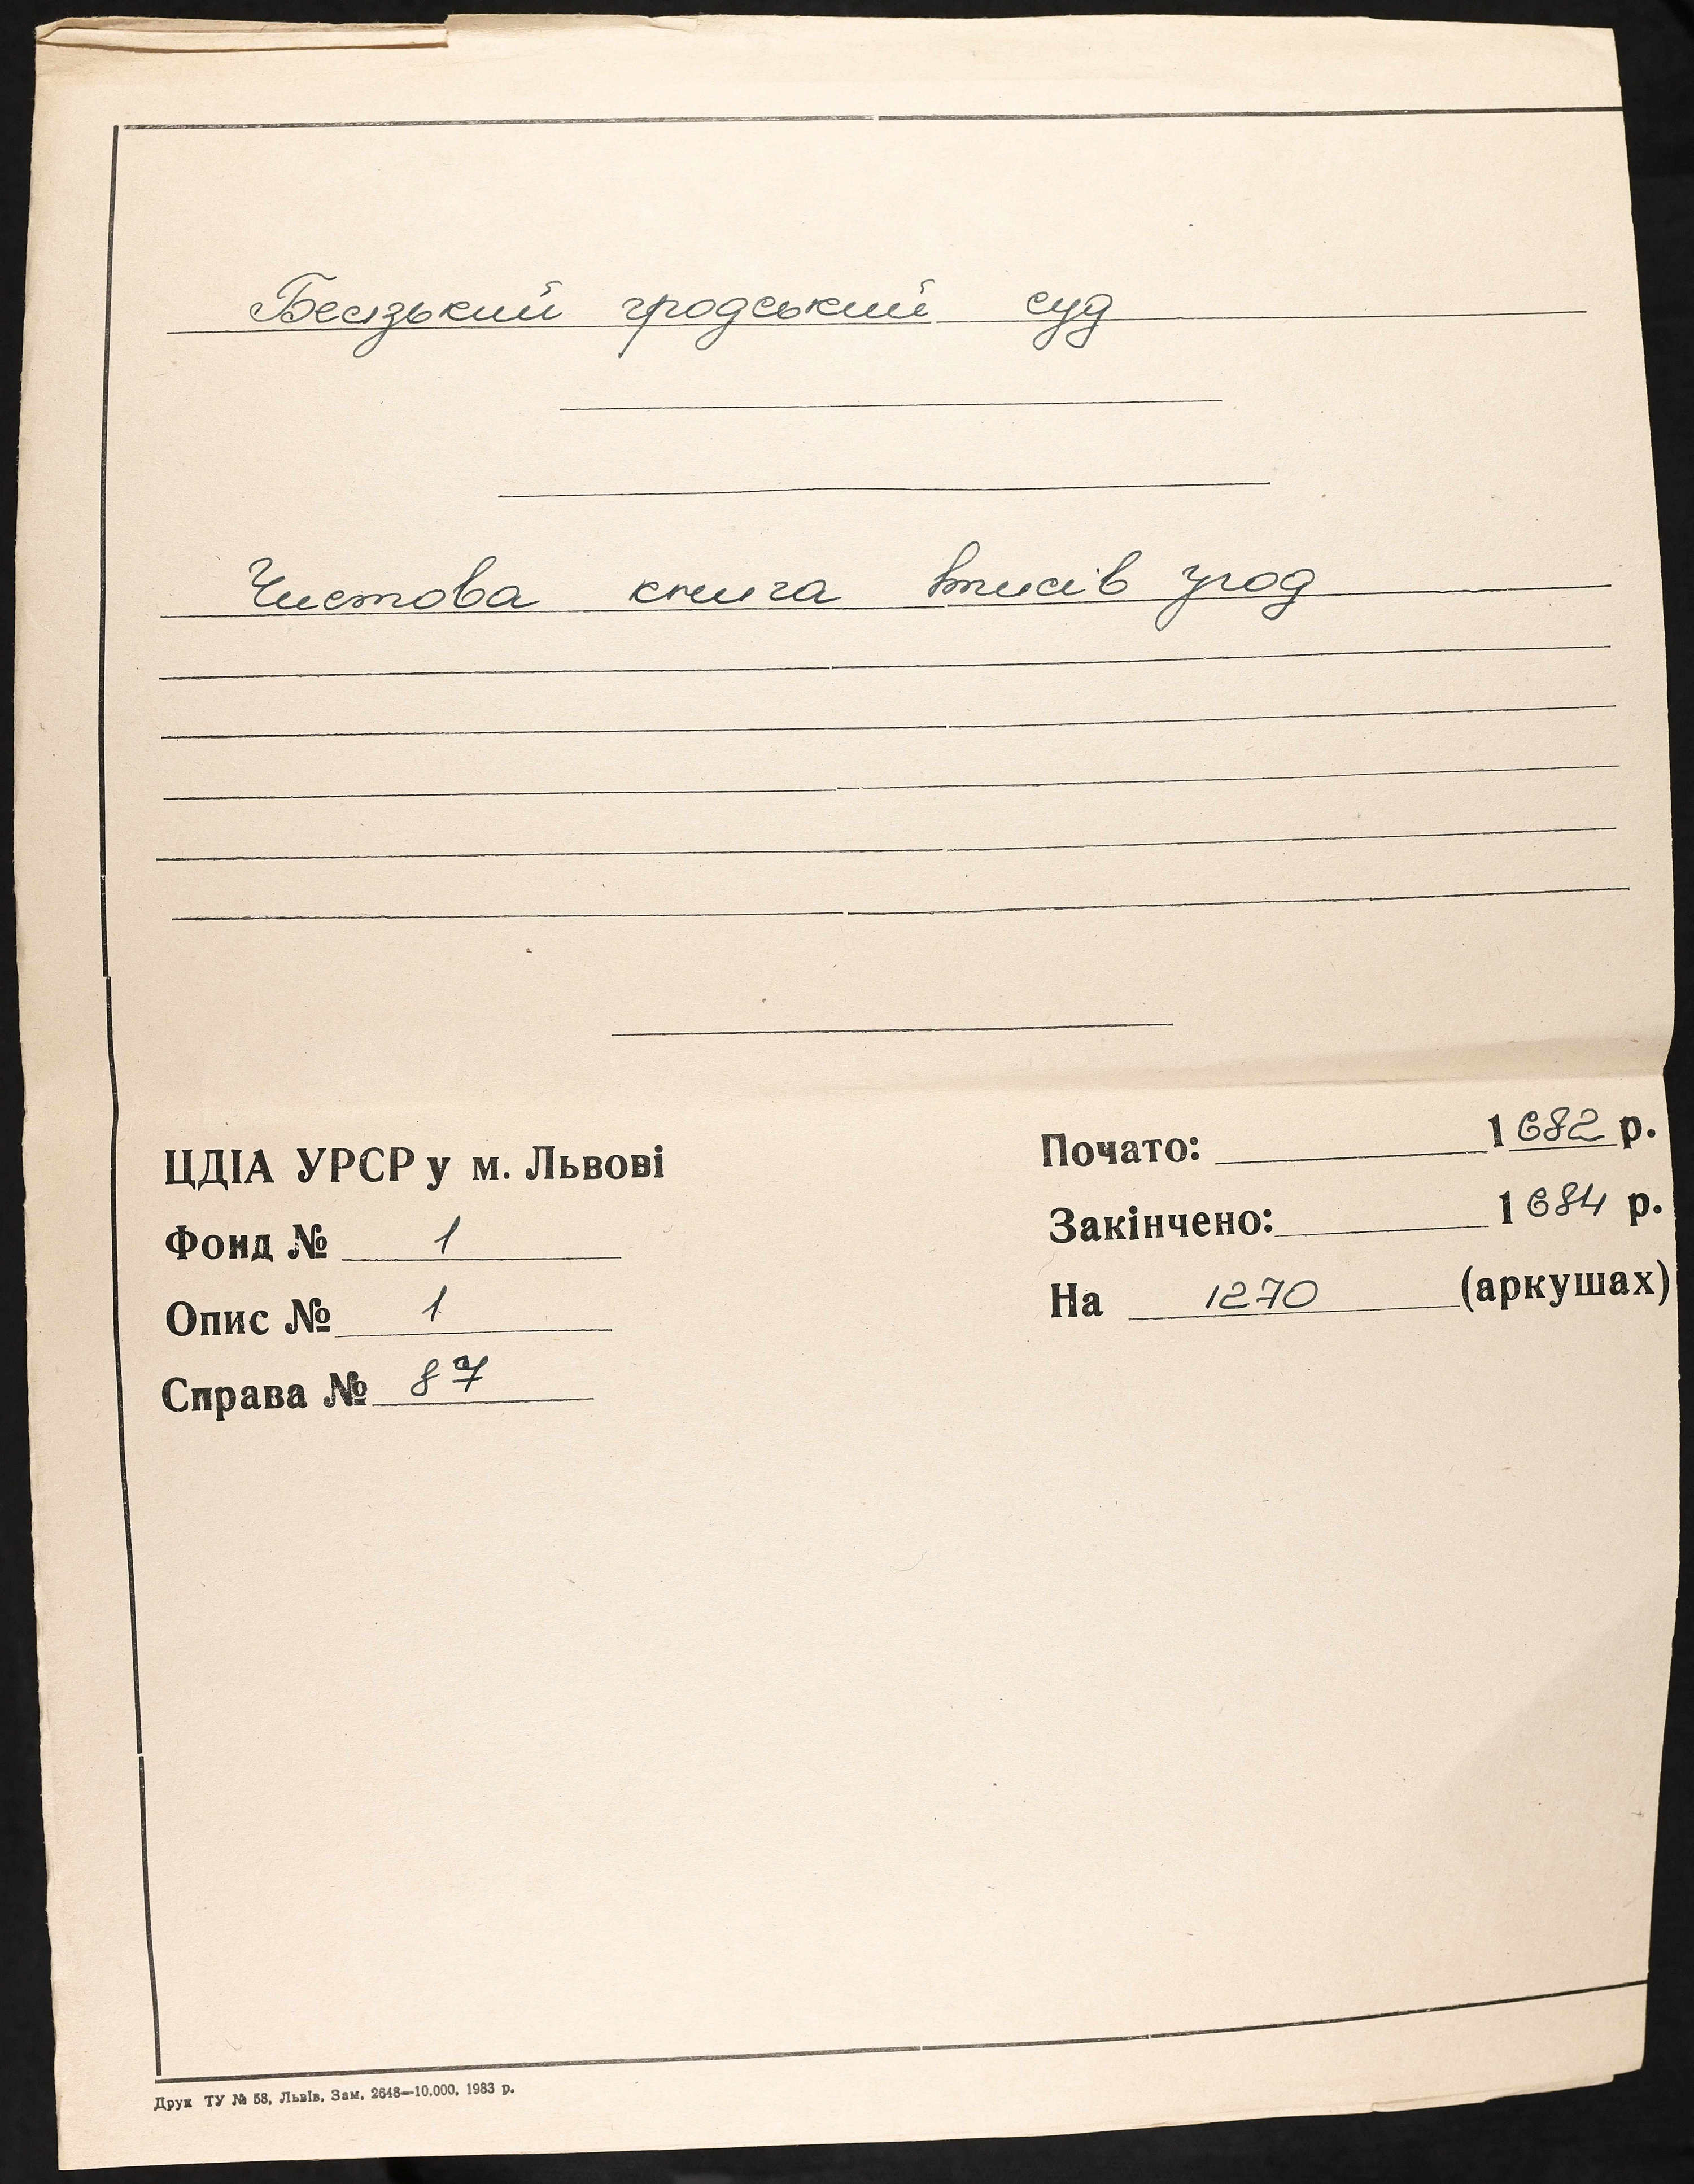 Белзький гродський суд
Чистова книга вписів угод
ЦДІА УРСР у м. Львові
Фонд № 1
Опис № 1
Справа № 87
Почато: 1682 р.
Закінчено: 1684 р.
На 1270 (аркушах)
Друк ТУ № 58, Львів, Зам. 2648—10.000, 1983 р.